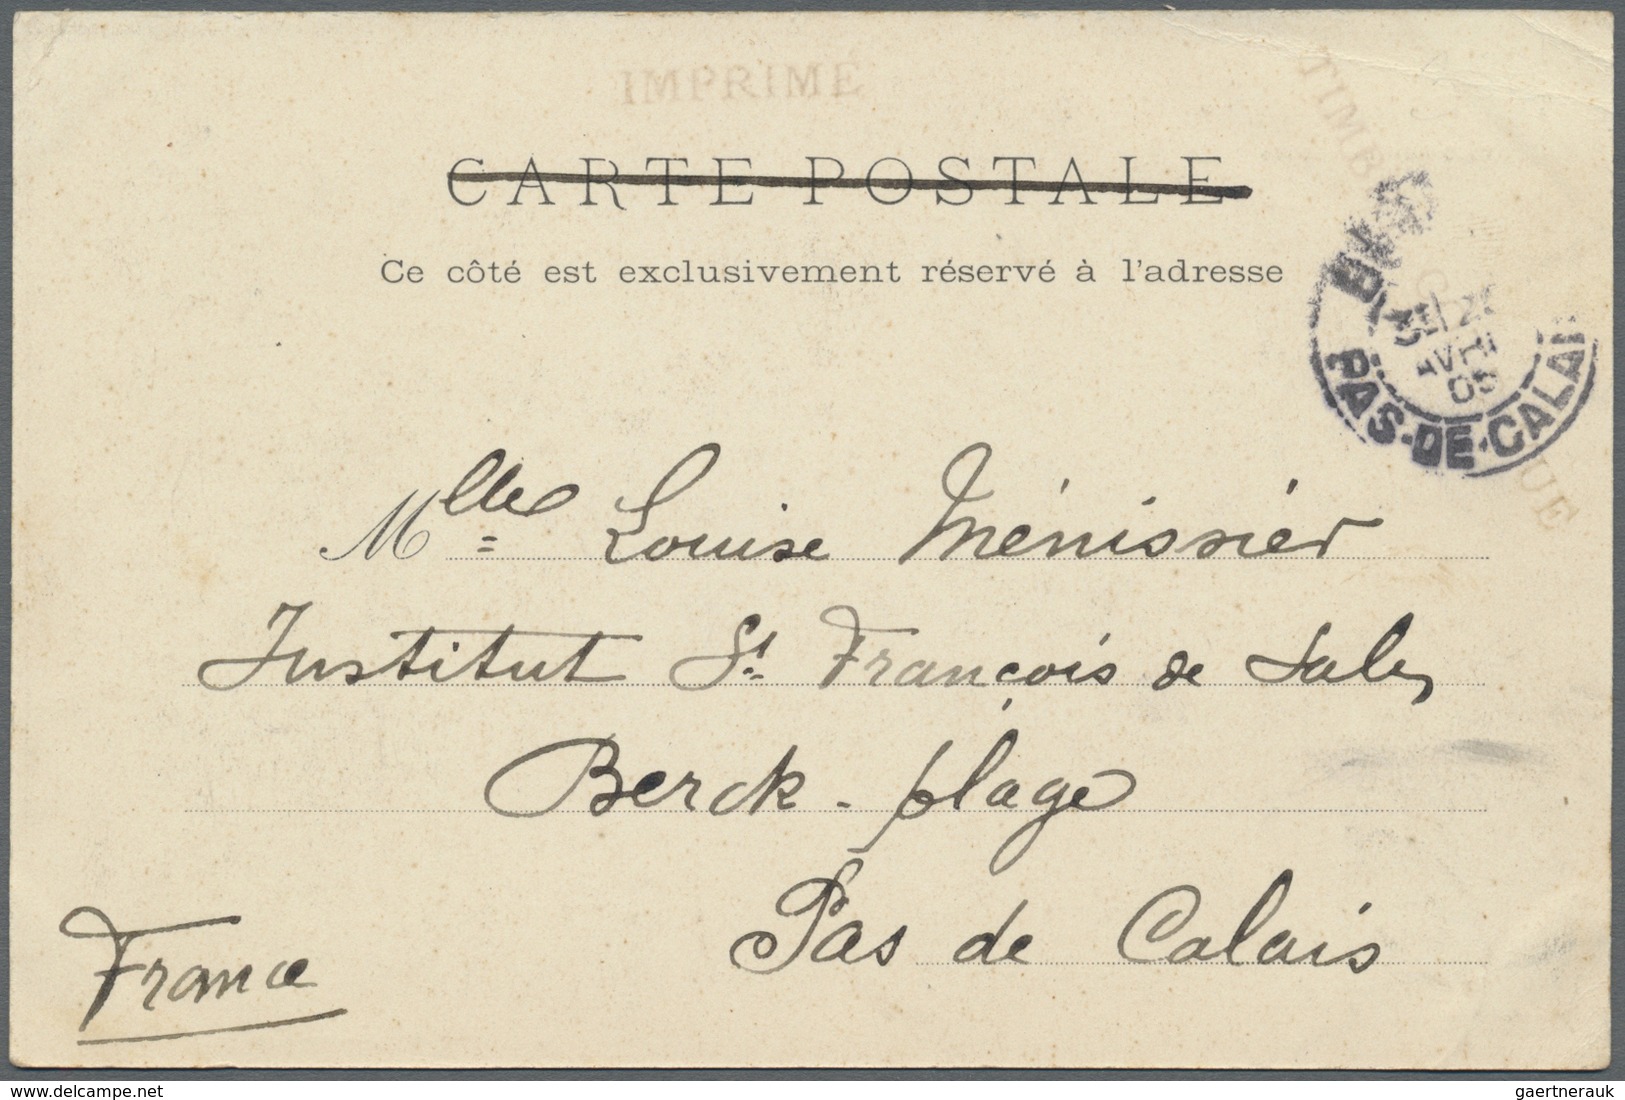 IMPRIME
CARTE POSTALE
Ce côté est exclusivement réservé à l'adresse
PAS-DE-CALAIS
Mlle Louise Ménissier
Institut St François de Sales
Berck-plage
Pas de Calais
France
delcampe.net
gaertnerauk